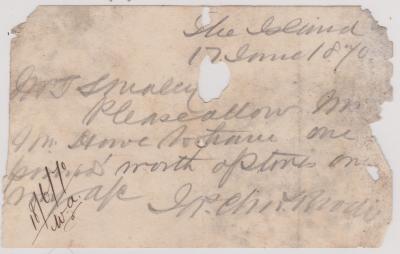 The Island
17 June 1870
Mr J Smaley
Please allow Mr
Wm Howe to have one
pounds' worth of stores on
my a/c
18/6/70